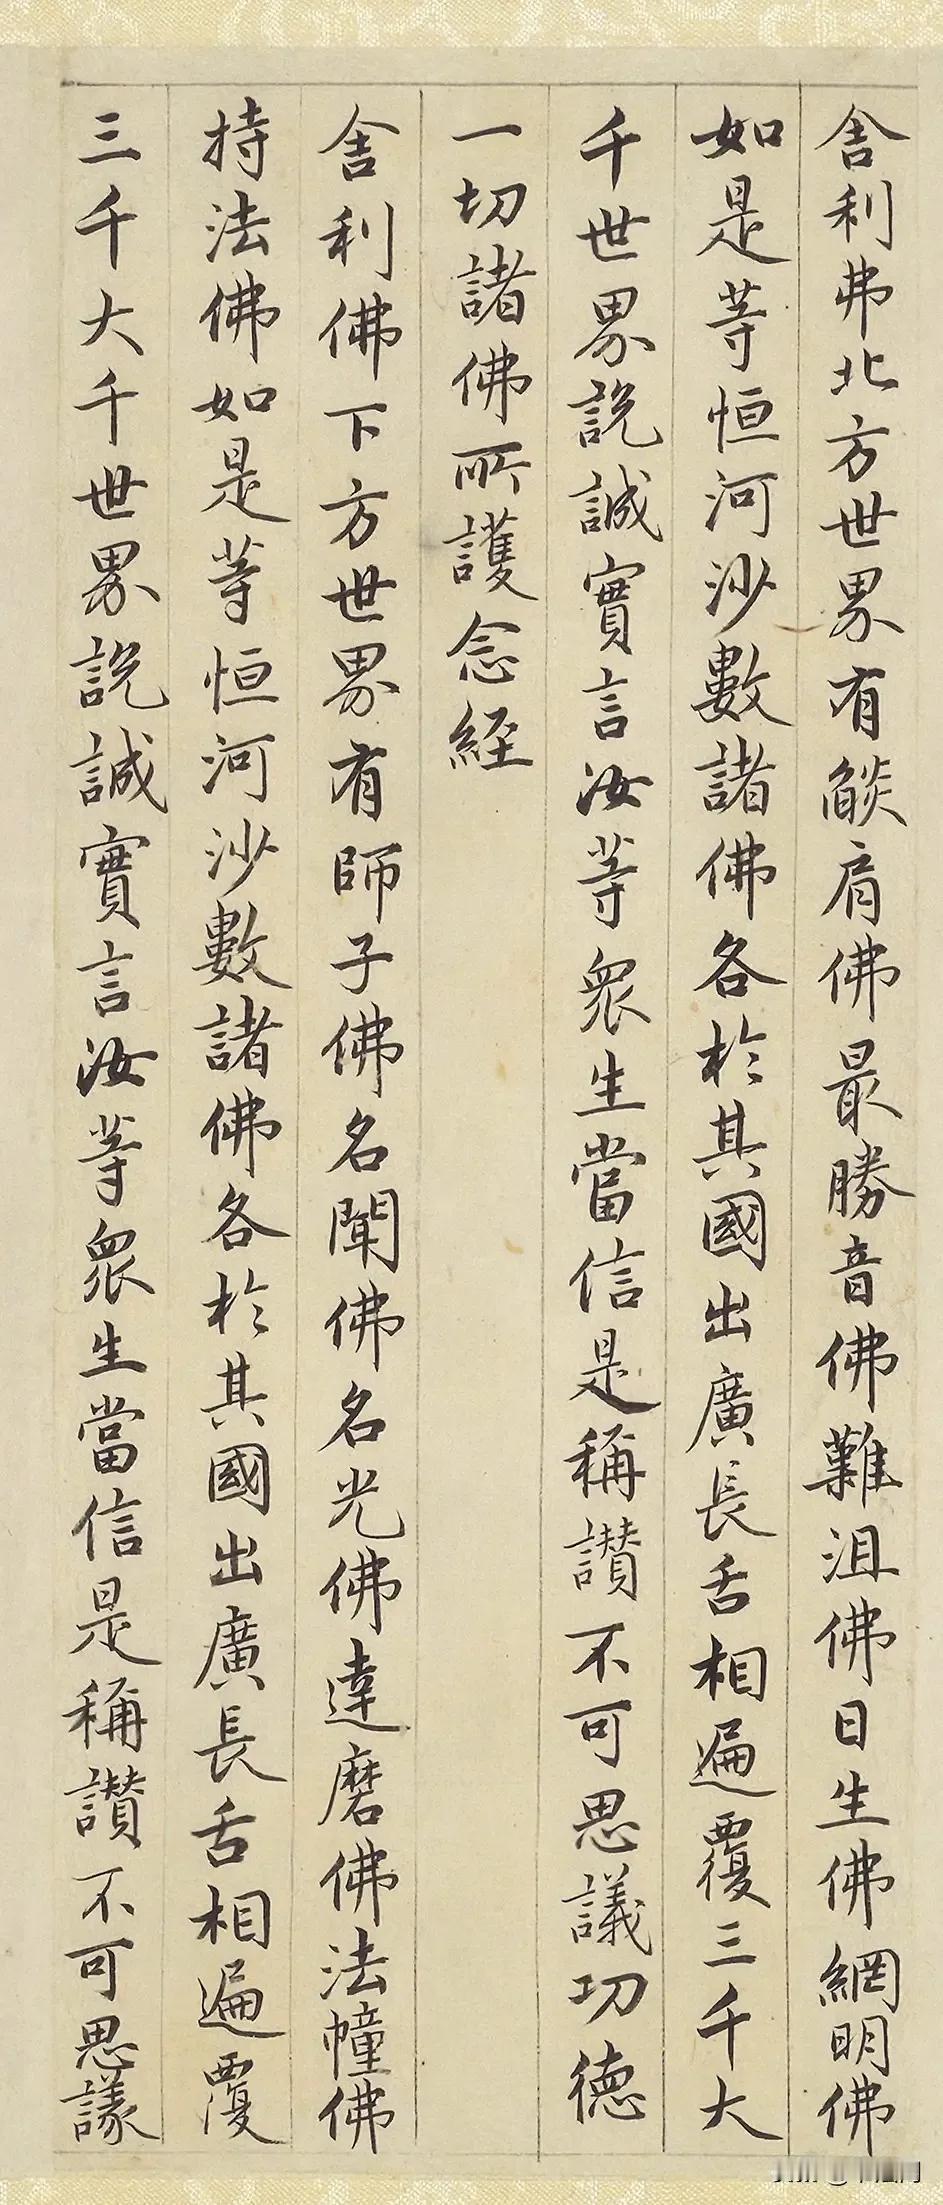 舍利弗北方世界有燄肩佛最勝音佛難沮佛日生佛網明佛
如是等恒河沙數諸佛各於其國出廣長舌相遍覆三千大
千世界説誠實言汝等眾生當信是稱讃不可思議功德
一切諸佛所護念經
舍利佛下方世界有師子佛名聞佛名光佛達磨佛法幢佛
持法佛如是等恒河沙數諸佛各於其國出廣長舌相遍覆
三千大千世界説誠實言汝等眾生當信是稱讃不可思議